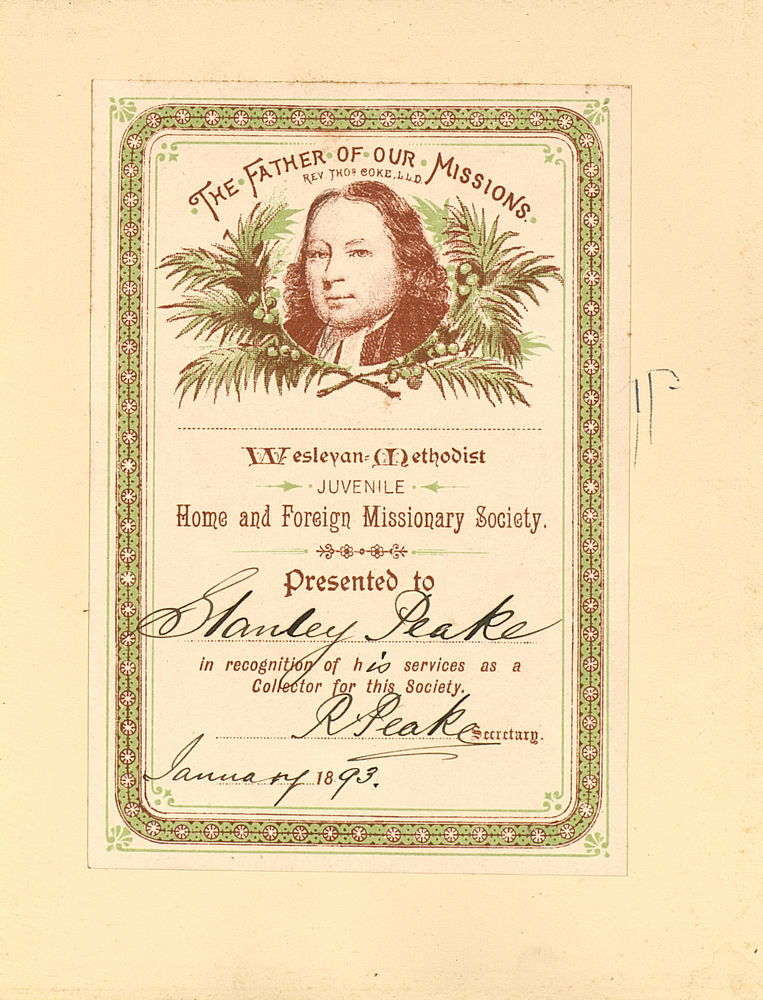 THE FATHER OF OUR MISSIONS.
REV. THOS COKE, LL.D.
Wesleyan-Methodist
JUVENILE
Home and Foreign Missionary Society.
Presented to
Stanley Peake
in recognition of his services as a
Collector for this Society.
R Peake Secretary.
January 1893.